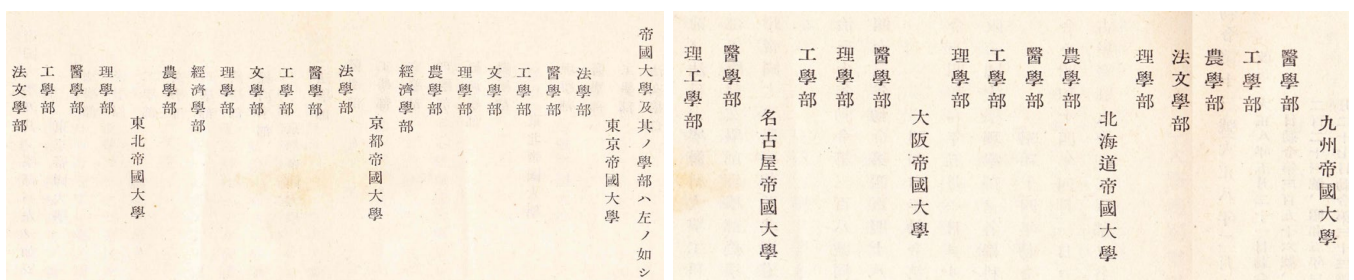 帝國大學及其ノ學部ハ左ノ如シ
東京帝國大學
法學部
醫學部
工學部
文學部
理學部
農學部
經濟學部
京都帝國大學
法學部
醫學部
工學部
文學部
理學部
經濟學部
農學部
東北帝國大學
理學部
醫學部
工學部
法文學部
九州帝國大學
醫學部
工學部
農學部
法文學部
理學部
北海道帝國大學
農學部
醫學部
工學部
理學部
大阪帝國大學
醫學部
理學部
工學部
名古屋帝國大學
醫學部
理工學部